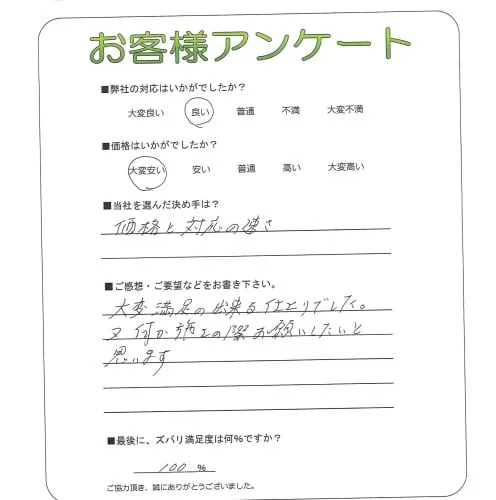 お客様アンケート
■弊社の対応はいかがでしたか？
大変良い 良い 普通 不満 大変不満
■価格はいかがでしたか？
大変安い 安い 普通 高い 大変高い
■当社を選んだ決め手は？
価格と対応の速さ
■ご感想・ご要望などをお書き下さい。
大変満足の出来る仕上りでした。
又何か施工の際お願いしたいと
思います
■最後に、ズバリ満足度は何%ですか？
100 %
ご協力頂き、誠にありがとうございました。